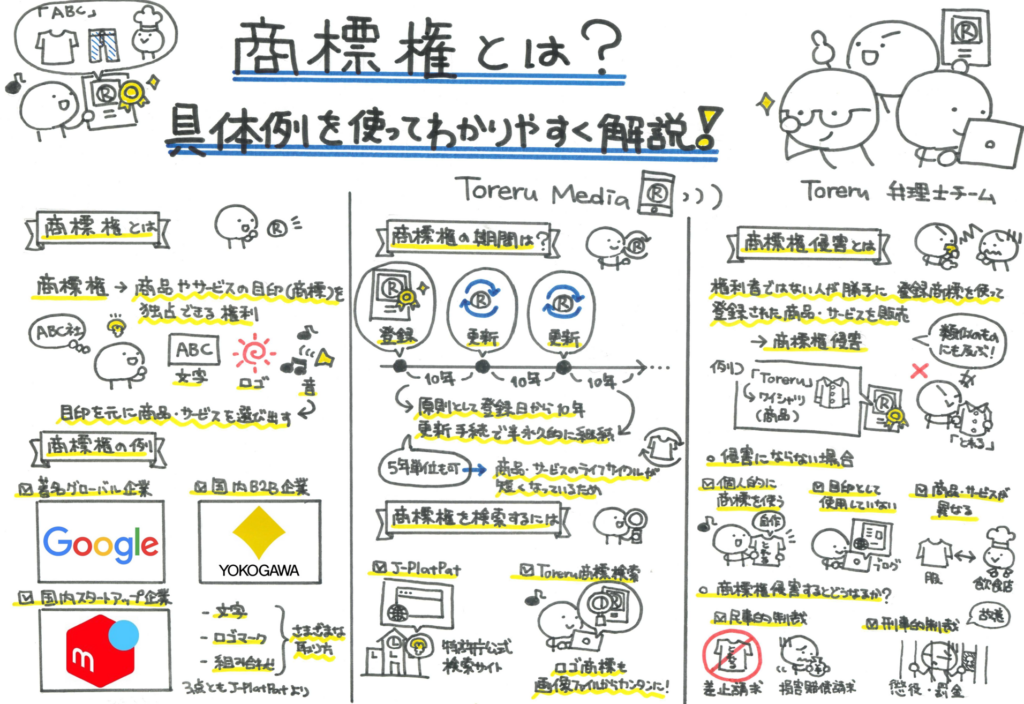 「ABC」
R
商標権とは?
具体例を使ってわかりやすく解説!
R
Toreru Media
R
Toreru 弁理士チーム
商標権とは
R
商標権 → 商品やサービスの目印(商標)を
独占できる権利
ABC社
ABC
文字
ロゴ
音
目印を元に商品・サービスを選び出す
商標権の例
著名グローバル企業
Google
国内B2B企業
YOKOGAWA
国内スタートアップ企業
m
- 文字
- ロゴマーク
- 組み合わせ
さまざまな
取り方
3点ともJ-PlatPatより
商標権の期間は?
R
R
登録
R
更新
R
更新
10年
10年
10年
原則として登録日から10年
更新手続で半永久的に継続
5年単位も可 → 商品・サービスのライフサイクルが
短くなっているため
商標権を検索するには
J-PlatPat
特許庁公式
検索サイト
Toreru商標検索
R
ロゴ商標も
画像ファイルからカンタンに!
商標権侵害とは
権利者ではない人が勝手に登録商標を使って
登録された商品・サービスを販売
→ 商標権侵害
類似のもの
にも及ぶ!
例)
「Toreru」
ワイシャツ
(商品)
R
「とれる」
侵害にならない場合
個人的に
商標を使う
自作
とれる
目印として
使用していない
ブログ
商品・サービスが
異なる
服
飲食店
商標権侵害するとどうなるか?
民事的制裁
差止請求
損害賠償請求
刑事的制裁
懲役・罰金